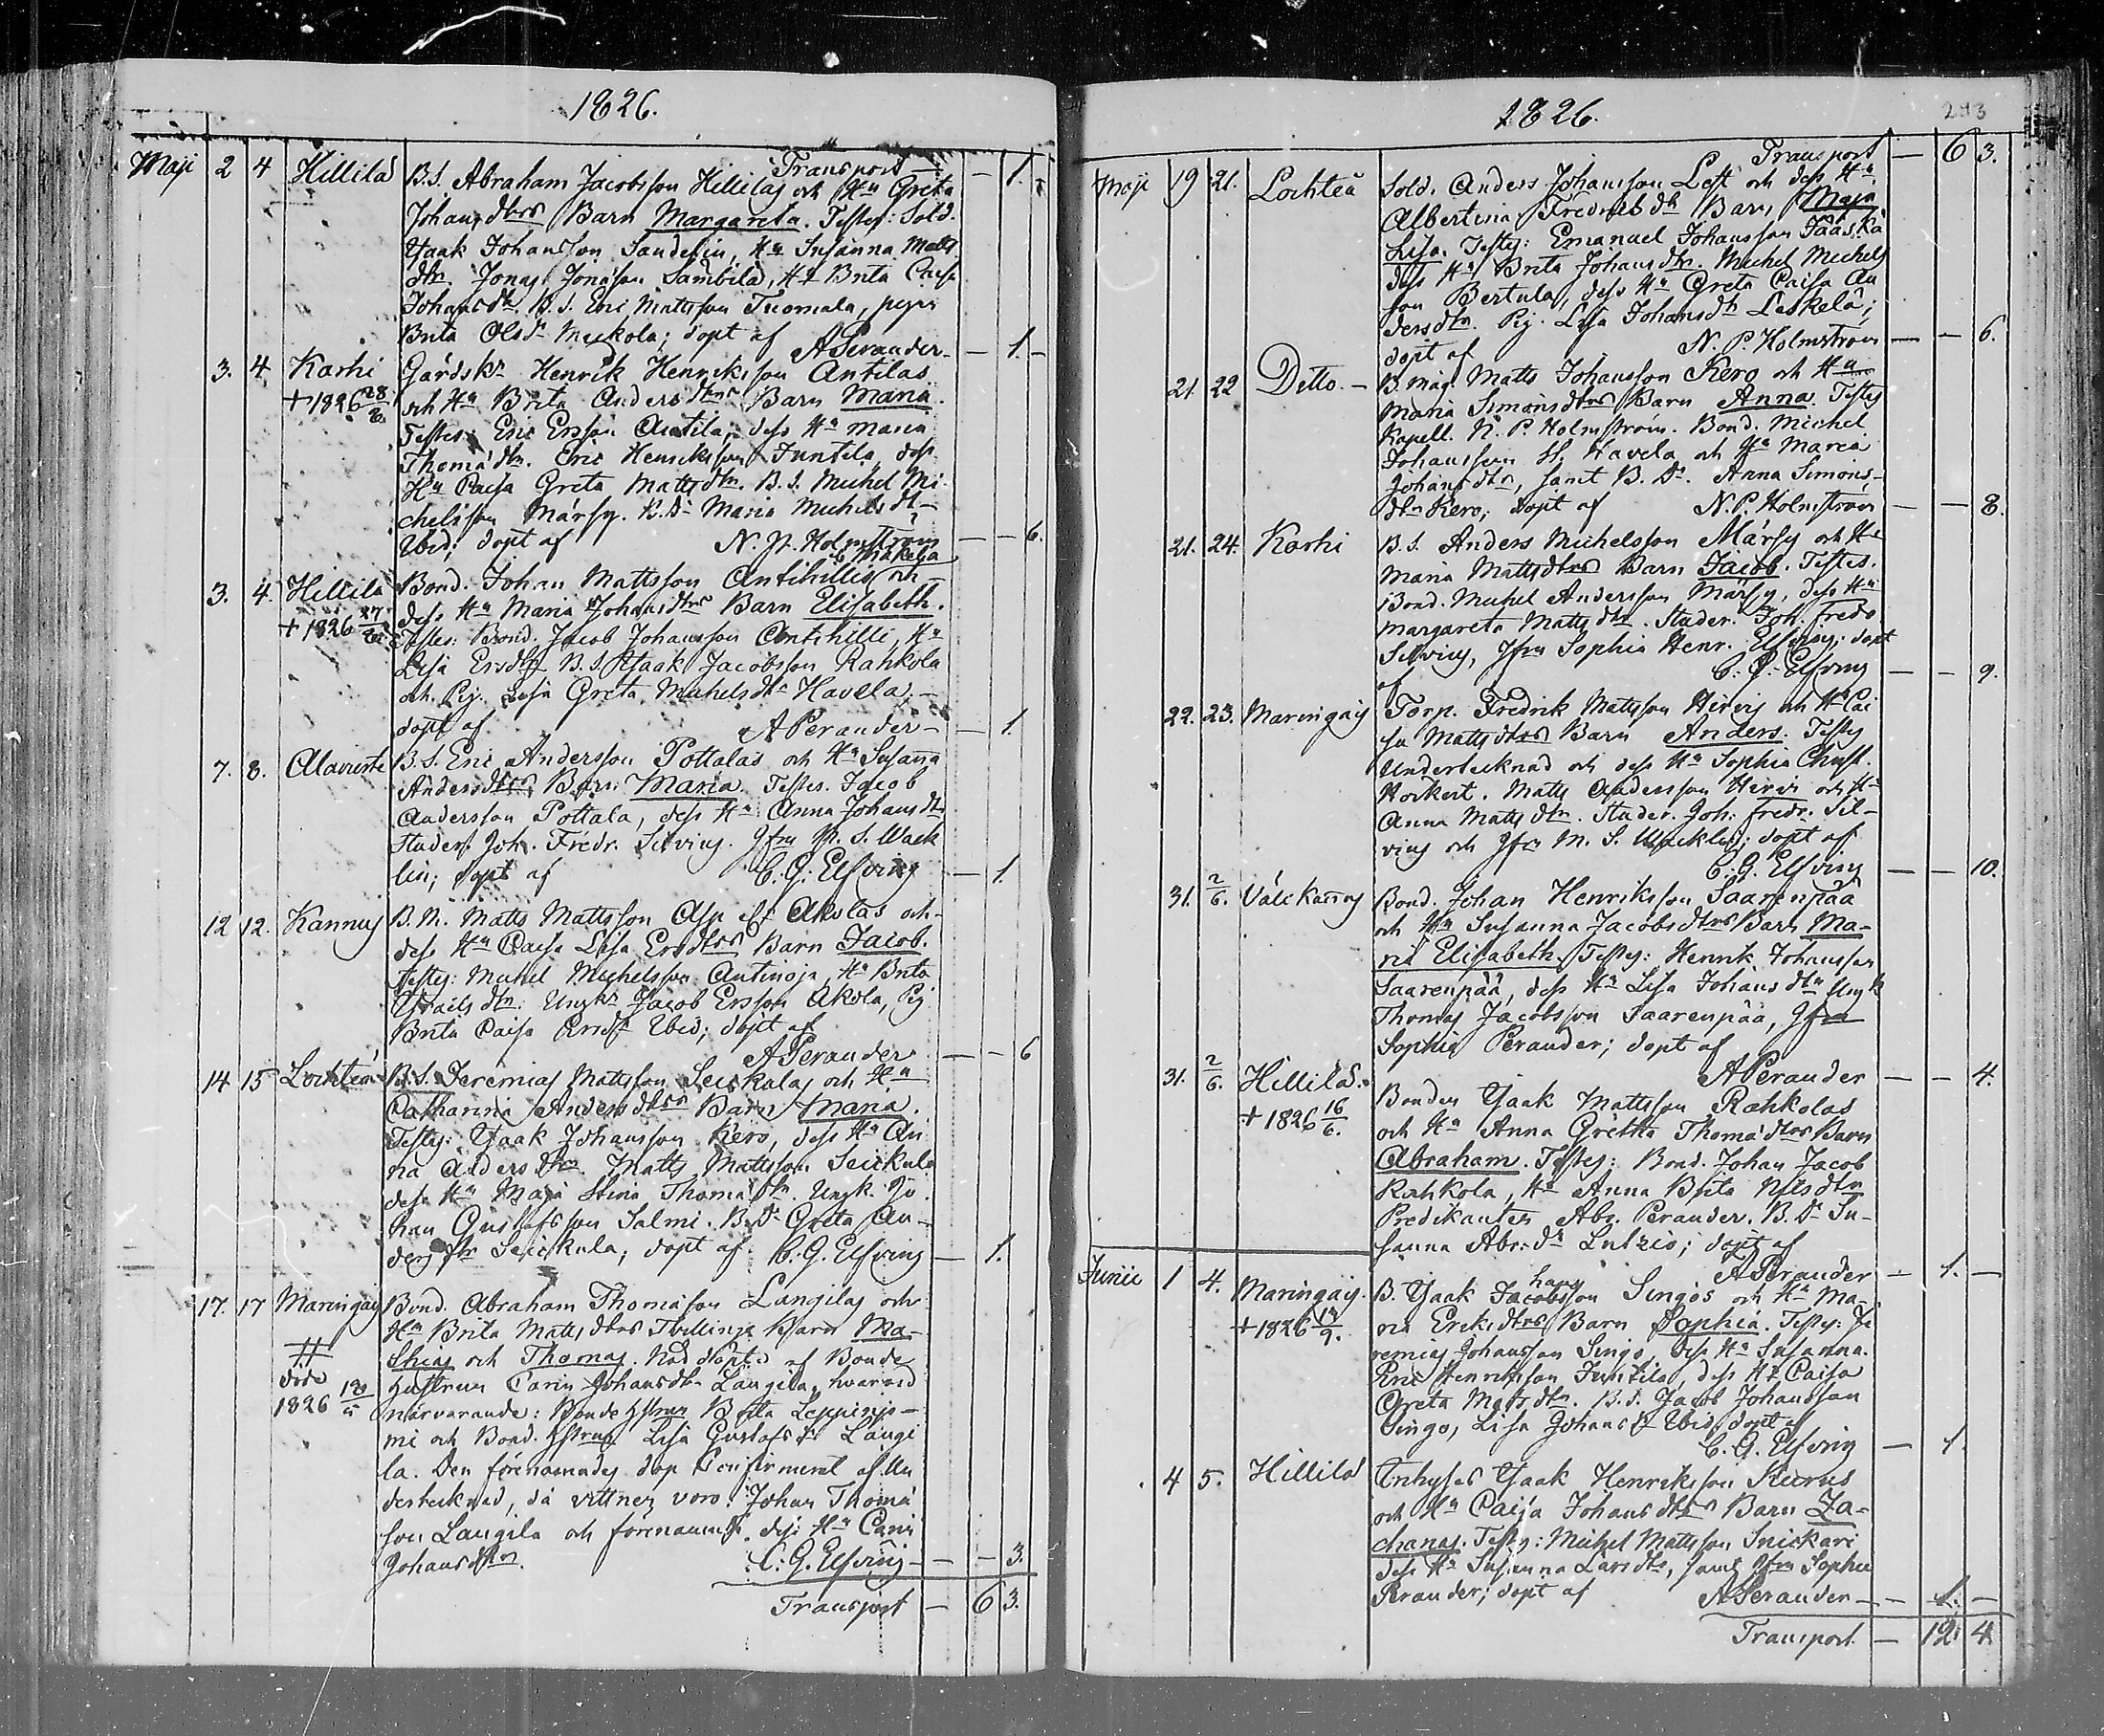 1826.
Transport — 1. -
Maji 2 4 Hillilä B.S. Abraham Jacobsson Hillilas och Hu Greta
Johansdtrs Barn Margareta. Testes: Sold.
Isaak Johansson Sandelin, Hu Susanna Matts
dtr. Jonas Jonasson Sambila, Hu Brita Caisa
Johansdtr. B.S. Eric Mattsson Tuomala, pigan
Brita Olsdr Muckola; döpt af A Perander — 1. -
3. 4 Karhi Gårdskr Henrik Henriksson Antilas
+ 1826 28/8. och Hu Brita Andersdtrs Barn Maria.
Testes: Eric Ersson Antila, dess Hu Maria
Thomædtr. Eric Henriksson Juntila, dess
Hu Caisa Greta Mattsdtr. B.S. Michel Mi-
chelsson Märsy. B.Dr Maria Michelsdr
Ibid; döpt af N.P. Holmström — — 6.
3. 4. Hillilä Bond. Johan Mattsson Antihillis och
+ 1826 27/8 dess Hu Maria Johansdtrs Barn Elisabeth.
Testes: Bond. Jacob Johansson Antihilli, Hu
Lisa Ersdtr B.S. Isaak Jacobsson Rahkola
och Pig. Lisa Greta Michelsdtr Havela. —
döpt af A Perander — — 1.
7. 8. Alaviirre B.S. Eric Andersson Pottalas och Hu Susanna
Andersdtrs Barn Maria. Testes. Jacob
Andersson Pottala, dess Hu Anna Johansdtr
Studer. Joh. Fredr. Silving. Jfru M. S. Wack
lin; döpt af C. G. Elfving — 1.
12 12. Kannus B. M. Matts Mattsson Asp el. Akolas och
dess Hu Caisa Lisa Ersdtrs Barn Jacob.
Testes: Michel Michelsson Antinoja, Hu Brita
Israelsdtr. Ungkr Jacob Ersson Akola, Pig
Brita Caisa Ersdr Ibid; döpt af
A Perander — — 6
14 15 Lochteå B.S. Jeremias Mattsson Seickalas och Hu
Catharina Andersdtrs Barn Maria.
Testes: Isaak Johansson Kero, dess Hu An
na Andersdtr. Matts Mattsson Seickula
dess Hu Maja Stina Thomædtr. Ungk. Jo
han Gustafsson Salmi. B.Dr Greta An-
dersdtr Seickula; döpt af C. G. Elfving — 1.
17. 17 Maringais Bond. Abraham Thomasson Langilas och
Hu Brita Mattsdtrs Tvillinge Barn Ma-
++ thias och Thomas. Nöd döpte af Bonde
döde hustrun Carin Johansdtr Langila, hvarvid
1826 närvarande: Bonde hstrun Brita Leppinie-
mi och Bond. hstrun Lisa Gustafsdr Langi
la. Den förenämndes dop Confirmerat af Un
dertecknad, då vittnen voro: Johan Thomæ
son Langila och förenämnde dess Hu Carin
Johansdtr. C. G. Elfving — — 3.
Transport — 6 3.
1826.
Transport — 6 3.
Maji 19 21. Lochteå Sold. Anders Johansson Löft och dess Hu
Albertina Fredriksdr Barn Maja
Lisa. Testes: Emanuel Johansson Jääskä
dess Hu Brita Johansdtr. Michel Michels
son Bertula, dess Hu Greta Caisa An
dersdtr. Pig. Lisa Johansdtr Leskelä;
döpt af N. P. Holmström — — 6.
21. 22 Ditto. — B. Måg. Matts Johansson Kero och Hu
Maria Simonsdtrs Barn Anna. Testes
Kapell. N. P. Holmström. Bond. Michel
Johansson Havela och Hu Maria
Johansdtr, samt B. Dr. Anna Simons-
dtr Kero; döpt af N. P. Holmström — — 8.
21. 24. Karhi B.S. Anders Michelsson Märsy och Hu
Maria Mattsdtrs Barn Jacob. Testes.
Bond. Michel Andersson Märsy, dess Hu
Margareta Mattsdtr. Studer. Joh. Fredr.
Silving, Jfru Sophia Henr. Elfving; döpt
af C. G. Elfving — — 9.
22. 23. Maringais Torp. Fredrik Mattsson Hirvis och Hu Cai
sa Mattsdtrs Barn Anders. Testes
Undertecknad och dess Hu Sophia Christ.
Horkert. Matts Andersson Hirvi och Hu
Anna Mattsdtr. Studer. Joh. Fredr. Sil-
ving och Jfr M. S. Wacklin; döpt af
C. G. Elfving — — 10.
31. 2/6. Välickannus Bond. Johan Henriksson Saarenpää
och Hu Susanna Jacobsdtrs Barn Ma-
ria Elisabeth. Testes: Henrik Johansson
Saarenpää, dess Hu Lisa Johansdtr Ungk
Thomas Jacobsson Saarenpää, Jfru
Sophia Perander; döpt af
A Perander — — 4.
31. 2/6. Hillilä. Bonden Isaak Mattsson Rahkolas
+ 1826 16/6. och Hu Anna Gretha Thomædtrs Barn
Abraham. Testes: Bond. Johan Jacob
Rahkola, Hu Anna Brita Nilsdtr
Predikanten Abr. Perander. B. Dr Su-
sanna Abr:dr Lutzio; döpt af
A Perander — 1. —
Junii 1 4. Maringais. B. Isaak Johansson Singos och Hu Ma-
+ 1826 ria Ericsdtrs Barn Sophia. Testes: Je
remias Johansson Singo, dess Hu Susanna.
Eric Henriksson Juntila, dess Hu Caisa
Greta Mattsdtr. B.S. Jacob Johansson
Singo, Lisa Johansdr Ibid; döpt af
C. G. Elfving — 1.
4 5. Hillilä Inhyses Isaak Henriksson Kecrus
och Hu Caisa Johansdtrs Barn Za-
charias. Testes: Michel Mattsson Snickari
dess Hu Susanna Larsdtr, samt Jfru Sophia
Perander; döpt af A Perander — — 1. —
Transport — 12 4